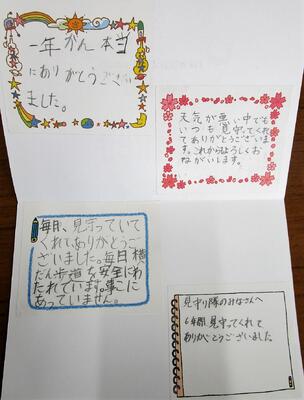 一年かん本当
にありがとうござい
ました。
天気が悪い中でも
いつも見守ってくれ
てありがとうございま
す。これからもよろしくお
ねがいします。
毎日、見守っていて
くれて、ありがとうご
ざいました。毎日横
だん歩道を安全にわ
たれています。事こに
あっていません。
見守り隊のみなさんへ
6年間見守ってくれて
ありがとうございました